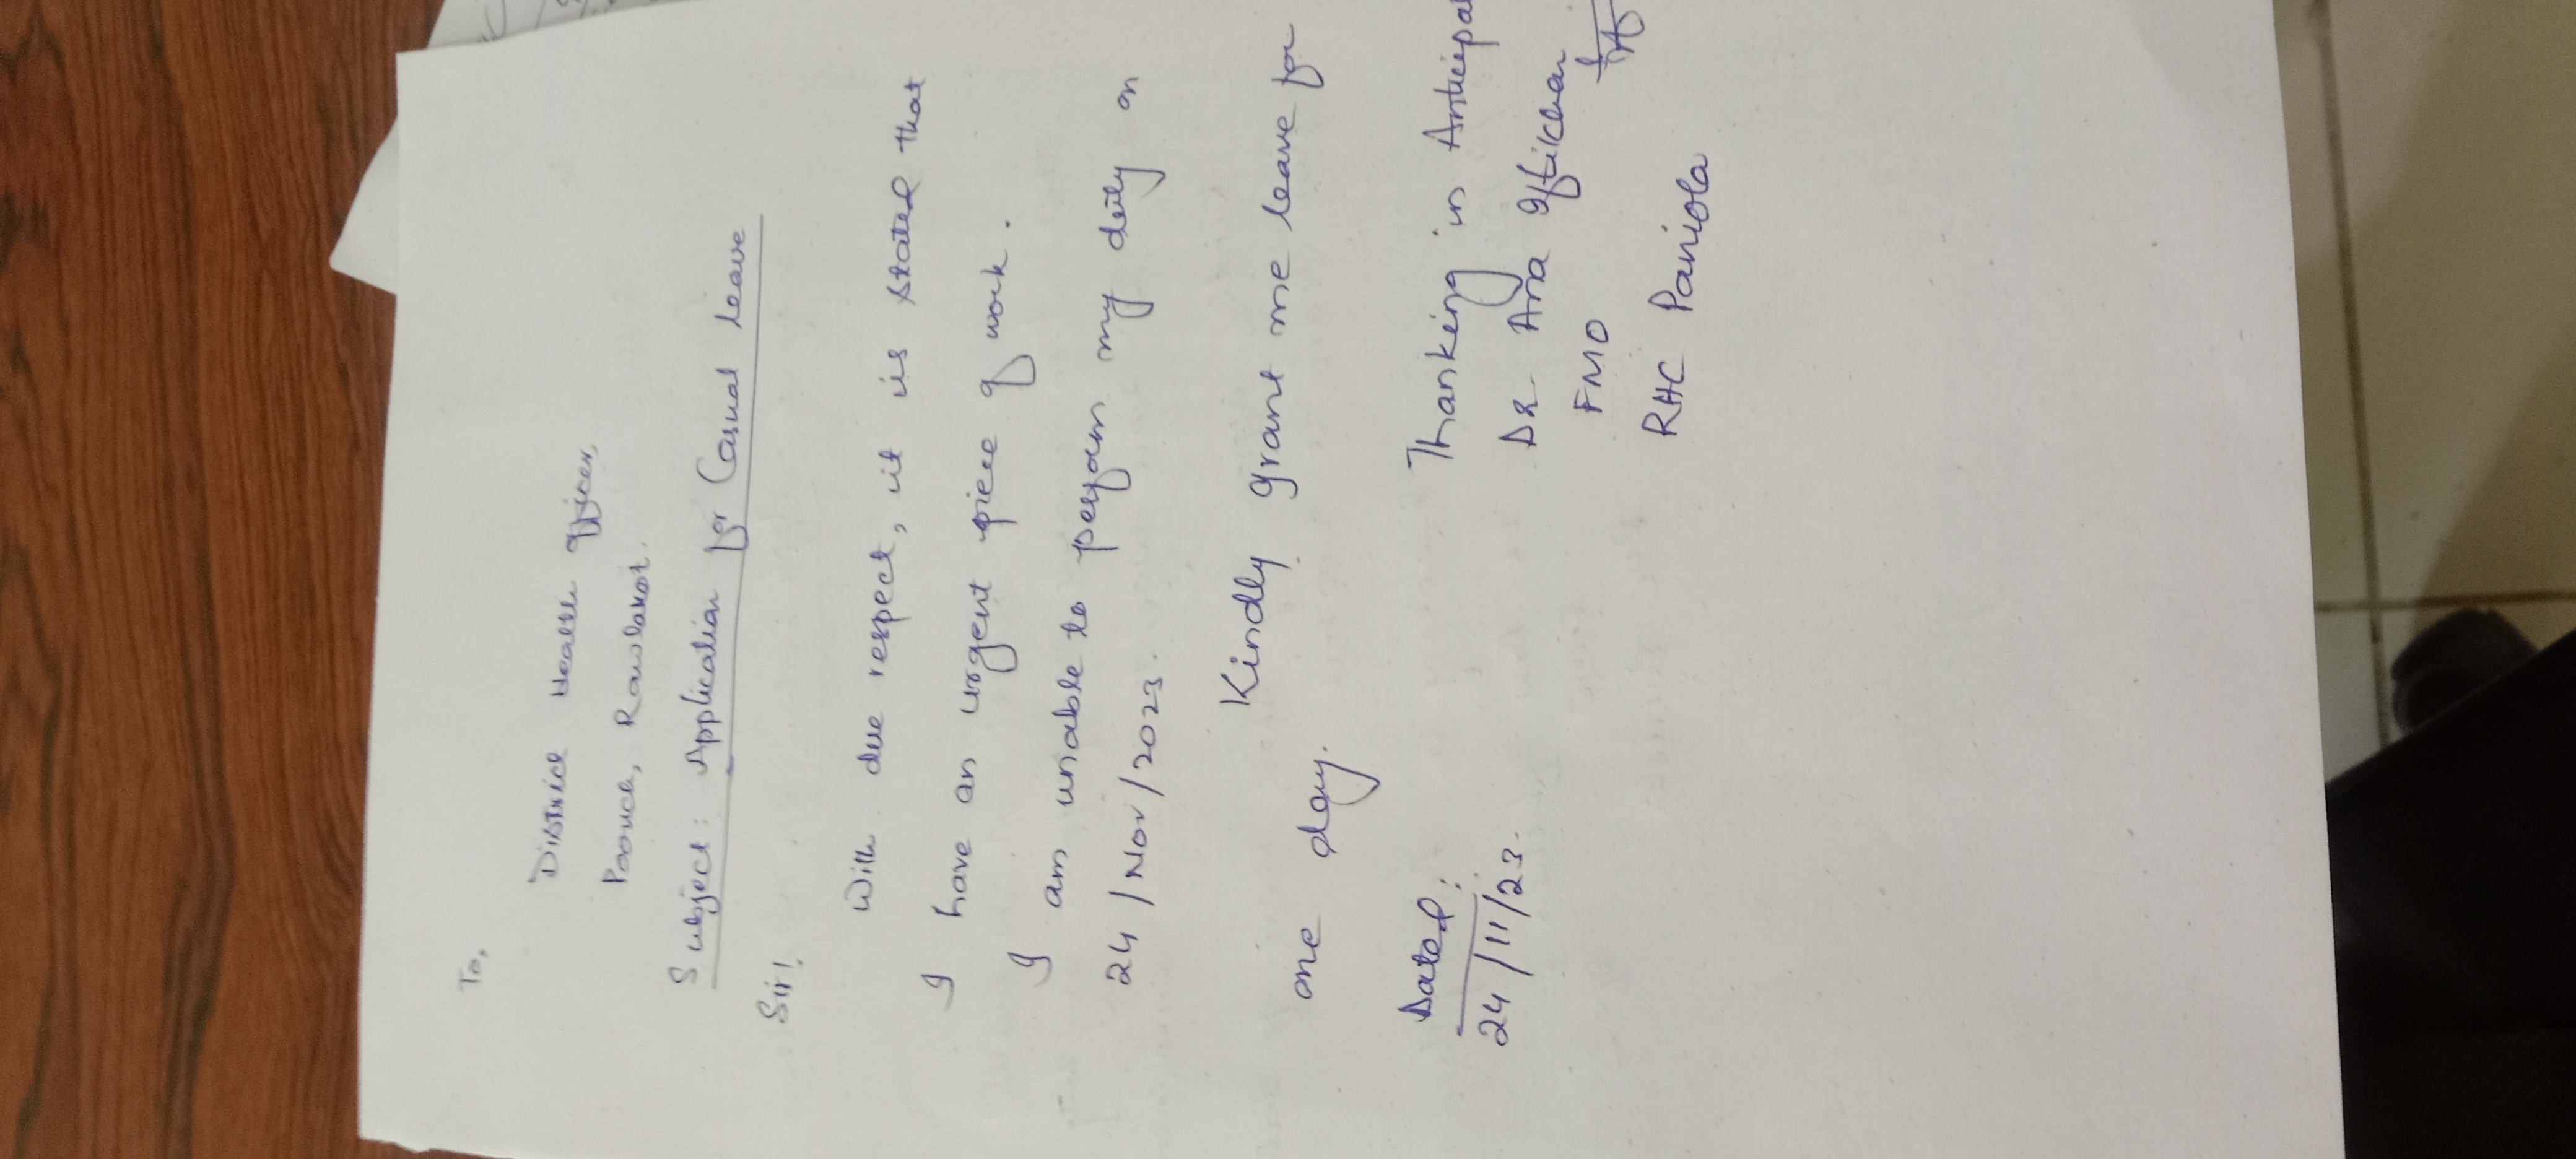 To,
District Health Officer,
Poonch, Rawlakot.
Subject: Application for Casual leave
Sir!
With due respect, it is stated that
I have an urgent piece of work.
I am unable to perform my duty on
24/Nov/2023.
Kindly grant me leave for
one day.
Thanking in Anticipat
Dr. Ana Iftikhar
FMO
RHC Paniola
Dated:
24/11/23.